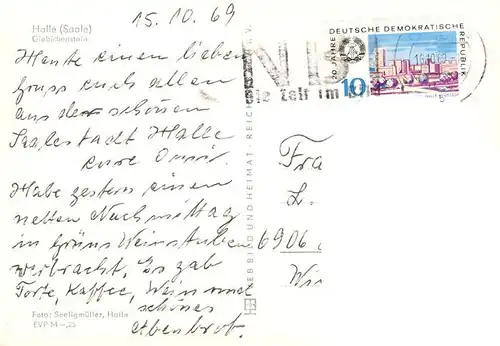 15.10.69
Halle (Saale)
Giebichenstein
Heute einen lieben
Gruss euch allen
aus der schönen
Saalestadt Halle
eure
Habe gestern einen
netten Nachmittag
in Grüns Weinstuben
verbracht, Es gab
Torte, Kaffee, Wein und
schönes
Abendbrot.
Foto: Seeligmüller, Halle
EVP M -,25
VEB BILD UND HEIMAT · REICH
20 JAHRE DDR
DEUTSCHE DEMOKRATISCHE
REPUBLIK
10
Zeit im
Fra
L.
6906